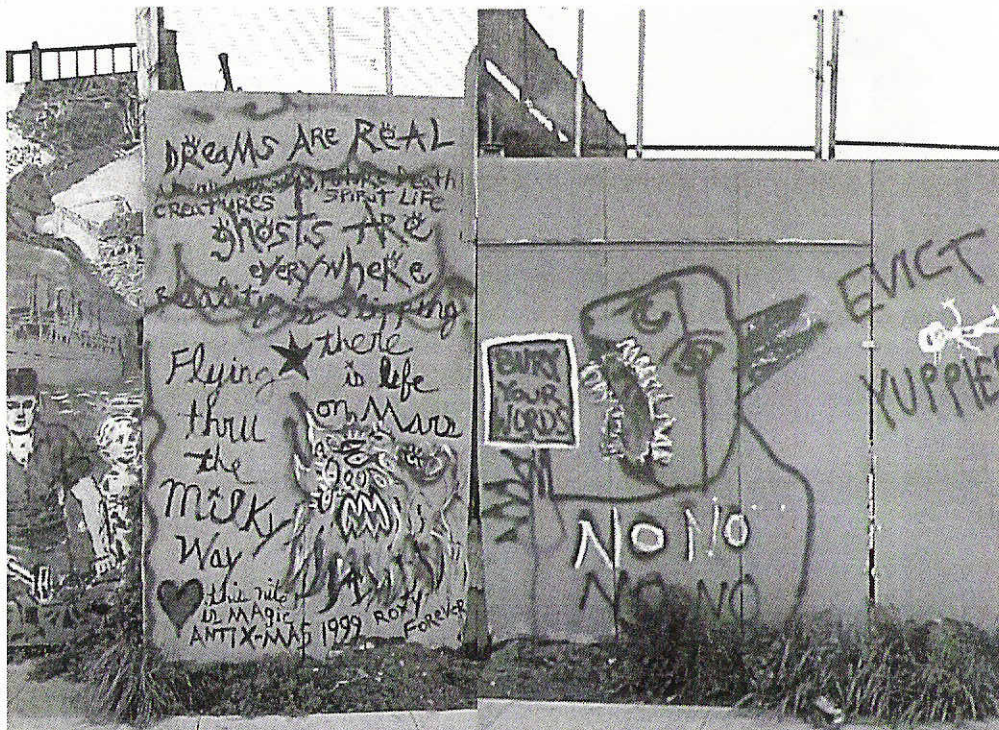 DREAMS ARE REAL
FUTURE Death
CREATURES SPIRIT LIFE
ghosts ARE
everywhere
Reality is slipping
Flying
thru
the
Milky
Way
there
is life
on Mars
this nite
is MAgic
ANTI X-MAS 1999
ROXY
FOREVER
BURY
YOUR
WORDS
NO NO
NO NO
EVICT
YUPPIE